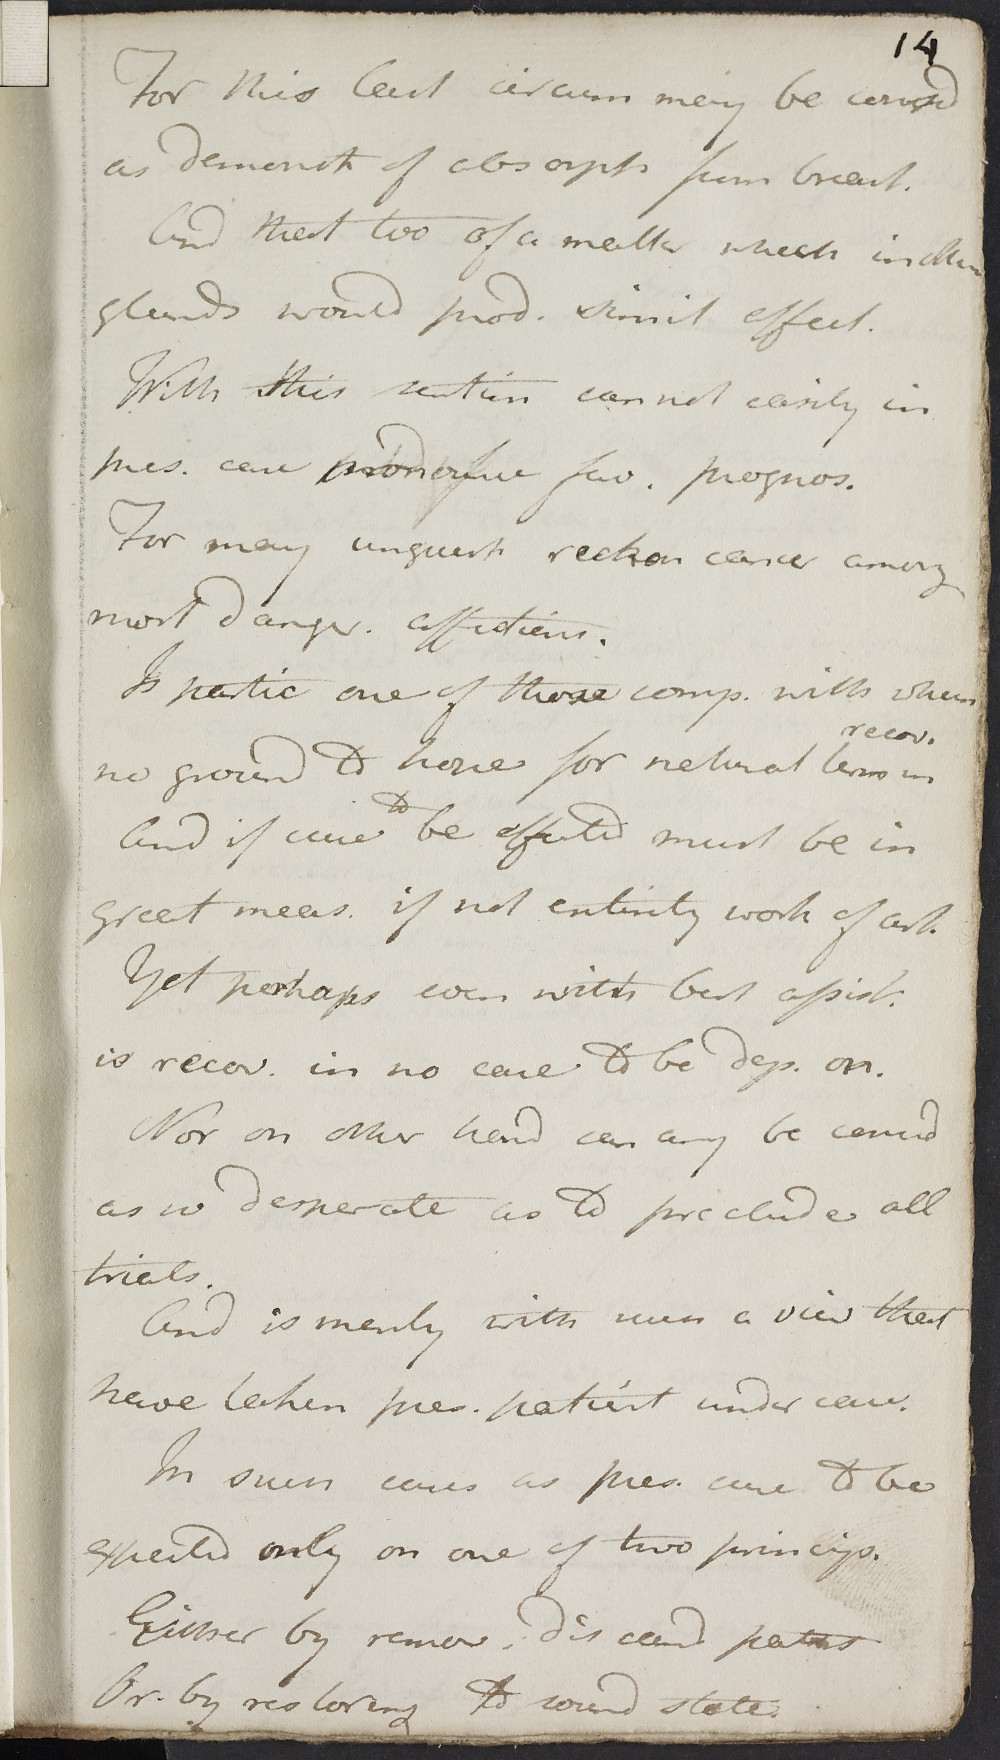 14
For this last circum may be consd
as demonst of absorpt from breast.
And that too of a matter which in other
glands would prod. simil effect.
With this notion cannot easily in
pres. case fav. prognos.
For may unquest reckon cancer among
most danger. affections.
Is partic one of those comp. with whom
recov.
no ground to hope for natural term in
And if cure to be effected must be in
great meas. if not entirely work of art.
Yet perhaps even with best assist.
is recov. in no case to be dep. on.
Nor on other hand can any be consid
as so desperate as to preclude all
trials.
And is merely with such a view that
have taken pres. patient under care.
In such cases as pres. cure to be
expected only on one of two princips.
Either by remov. diseased parts
Or by restoring to sound state.